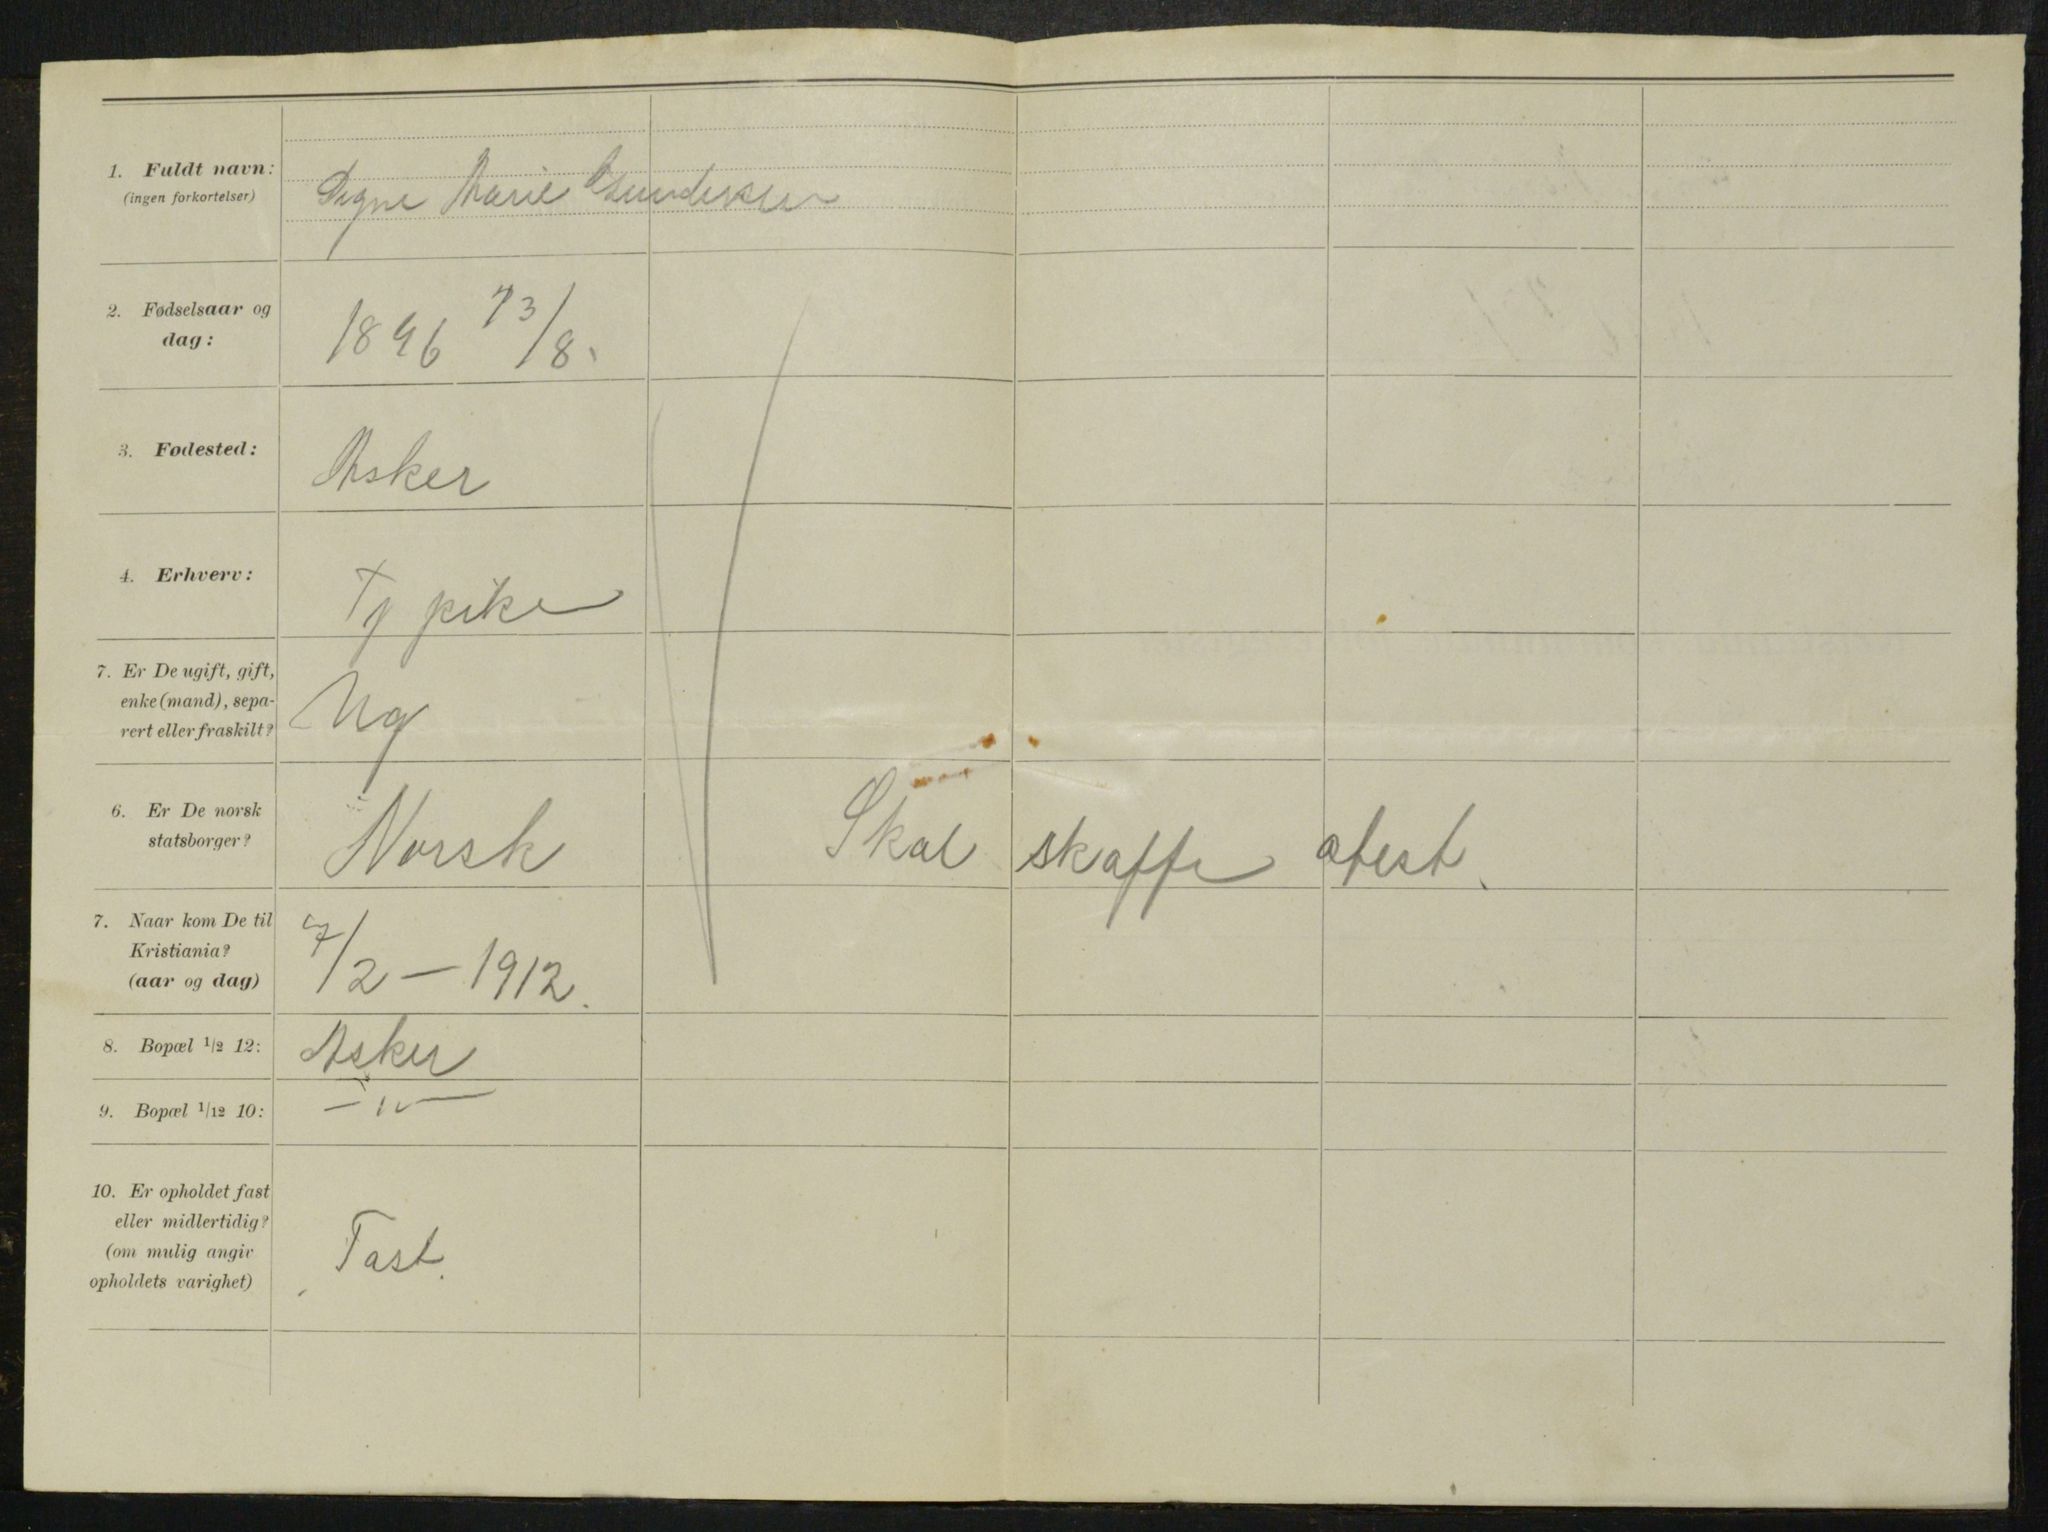 1. Fuldt navn:
(ingen forkortelser)
Signe Marie Gundersen
2. Fødselsaar og
dag:
1896 13/8.
3. Fødested:
Asker
4. Erhverv:
Tj pike
7. Er De ugift, gift,
enke (mand), sepa-
rert eller fraskilt?
Ug
6. Er De norsk
statsborger?
Norsk
Skal skaffe atest.
7. Naar kom De til
Kristiania?
(aar og dag)
7/2 – 1912.
8. Bopæl 1/2 12:
Asker
9. Bopæl 1/12 10:
— " —
10. Er opholdet fast
eller midlertidig?
(om mulig angiv
opholdets varighet)
Fast.